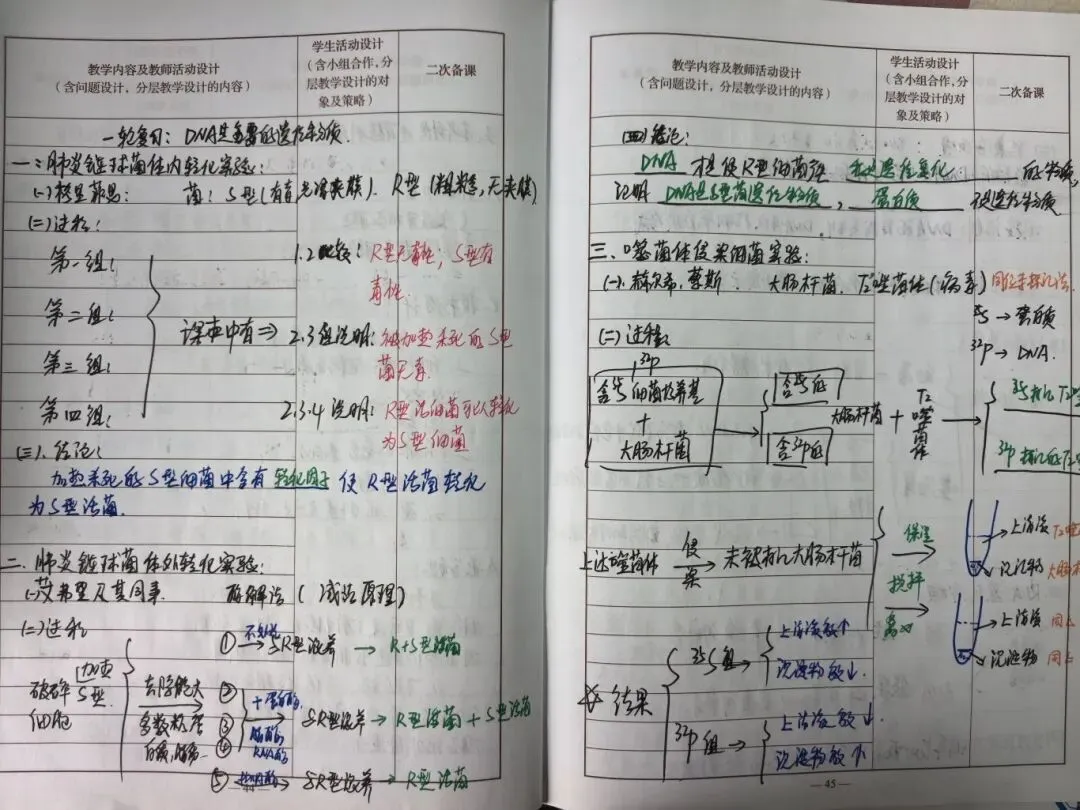 教学内容及教师活动设计
(含问题设计，分层教学设计的内容)
学生活动设计
(含小组合作,分
层教学设计的对
象及策略)
二次备课
一轮复习: DNA是主要的遗传物质.
一: 肺炎链球菌体内转化实验:
(一) 菌: S型(有毒, 光滑夹膜). R型(粗糙,无夹膜)
(二)过程:
第一组:
第二组:
第三组:
第四组:
课本中有⇒
1.2比较: R型无毒性; S型有
毒性.
2.3组说明: 被加热杀死的S型
菌无毒.
2.3.4说明: R型活细菌可以转化
为S型细菌
(三)、结论:
加热杀死的S型细菌中含有转化因子使R型活菌转化
为S型活菌.
二. 肺炎链球菌体外转化实验:
(一)艾弗里及其同事. 酶解法 (减法原理)
(二)过程
破碎
加热
S型
细胞
去除绝大
多数糖类
① 与R型混养 → R+S型活菌
②
③
④
+蛋白酶
酯酶
RNA酶
与R型混养 → R型活菌 + S型活菌
⑤ 与R型混养 → R型活菌
教学内容及教师活动设计
(含问题设计，分层教学设计的内容)
学生活动设计
(含小组合作,分
层教学设计的对
象及策略)
二次备课
(四)结论:
DNA 才是使R型的细菌 产生遗传变化 的物质,
证明 DNA是S型菌遗传物质, 蛋白质 不是遗传物质
三、噬菌体侵染细菌实验:
(一). 赫尔希,蔡斯. 大肠杆菌. T2噬菌体(病毒) 同位素标记法.
35S → 蛋白质
32P → DNA.
(二)过程:
32P
含35S的菌培养基
+
大肠杆菌
含35S的
含32P的
大肠杆菌 + T2噬菌体
35S标记T2
32P标记的T2
上述噬菌体 侵染 未被标记大肠杆菌
保温
搅拌
离心
上清液
沉淀物 大肠
上清液 同上
沉淀物 同上
结果
35S组
上清液放↑
沉淀物放↓.
32P组
上清液放↓.
沉淀物放↑
— 45 —